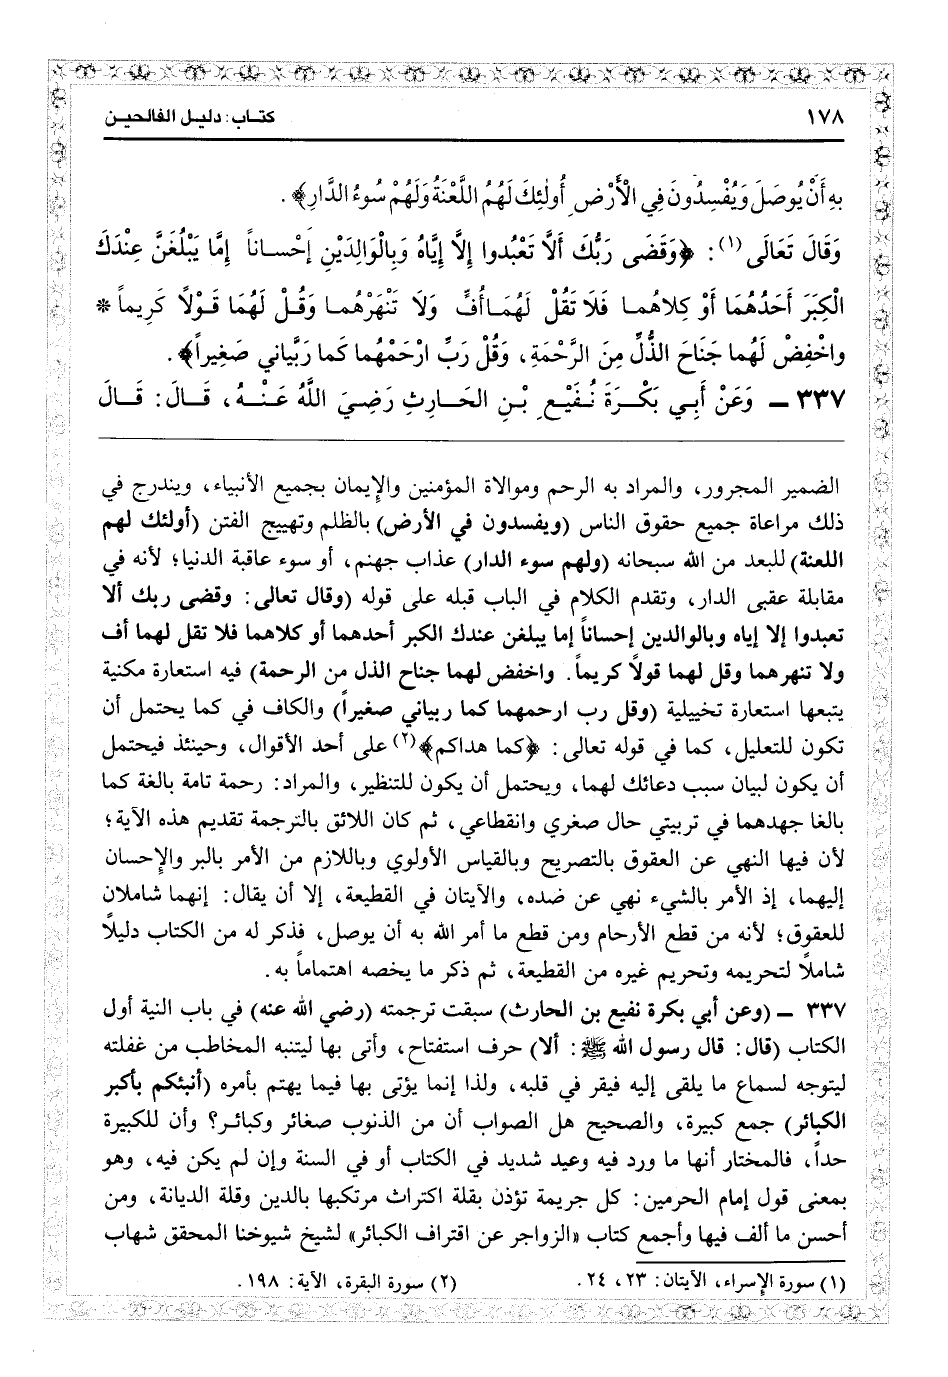 ١٧٨
كتـاب: دليـل الفالحيـن
بِهِ أَنْ يُوصَلَ وَيُفْسِدُونَ فِي الْأَرْضِ أُولٰئِكَ لَهُمُ اللَّعْنَةُ وَلَهُمْ سُوءُ الدَّارِ﴾.
وَقَالَ تَعَالَى(١): ﴿وَقَضَى رَبُّكَ أَلَّا تَعْبُدُوا إِلَّا إِيَّاهُ وَبِالْوَالِدَيْنِ إِحْساناً إِمَّا يَبْلُغَنَّ عِنْدَكَ
الْكِبَرَ أَحَدُهُمَا أَوْ كِلاهُمـا فَلَا تَقُلْ لَهُمَا أُفٍّ وَلَا تَنْهَرْهُمـا وَقُـلْ لَهُمَا قَـوْلًا كَرِيمـاً *
واخْفِضْ لَهُما جَنَاحَ الذُّلِّ مِنَ الرَّحْمَةِ، وَقُلْ رَبِّ ارْحَمْهُما كَما رَبَّياني صَغِيراً﴾.
٣٣٧ ـ وَعَنْ أَبِـي بَكْـرَةَ نُـفَيْـعِ بْـنِ الحَـارِثِ رَضِـيَ اللَّهُ عَنْـهُ، قَـالَ: قَـالَ
الضمير المجرور، والمراد به الرحم وموالاة المؤمنين والإيمان بجميع الأنبياء، ويندرج في
ذلك مراعاة جميع حقوق الناس (ويفسدون في الأرض) بالظلم وتهييج الفتن (أولئك لهم
اللعنة) للبعد من الله سبحانه (ولهم سوء الدار) عذاب جهنم، أو سوء عاقبة الدنيا؛ لأنه في
مقابلة عقبى الدار، وتقدم الكلام في الباب قبله على قوله (وقال تعالى: وقضى ربك ألا
تعبدوا إلا إياه وبالوالدين إحساناً إما يبلغن عندك الكبر أحدهما أو كلاهما فلا تقل لهما أف
ولا تنهرهما وقل لهما قولاً كريماً. واخفض لهما جناح الذل من الرحمة) فيه استعارة مكنية
يتبعها استعارة تخييلية (وقل رب ارحمهما كما ربياني صغيراً) والكاف في كما يحتمل أن
تكون للتعليل، كما في قوله تعالى: ﴿كما هداكم﴾(٢) على أحد الأقوال، وحينئذ فيحتمل
أن يكون لبيان سبب دعائك لهما، ويحتمل أن يكون للتنظير، والمراد: رحمة تامة بالغة كما
بالغا جهدهما في تربيتي حال صغري وانقطاعي، ثم كان اللائق بالترجمة تقديم هذه الآية؛
لأن فيها النهي عن العقوق بالتصريح وبالقياس الأولوي وباللازم من الأمر بالبر والإحسان
إليهما، إذ الأمر بالشيء نهي عن ضده، والآيتان في القطيعة، إلا أن يقال: إنهما شاملان
للعقوق؛ لأنه من قطع الأرحام ومن قطع ما أمر الله به أن يوصل، فذكر له من الكتاب دليلاً
شاملاً لتحريمه وتحريم غيره من القطيعة، ثم ذكر ما يخصه اهتماماً به.
٣٣٧ ـ (وعن أبي بكرة نفيع بن الحارث) سبقت ترجمته (رضي الله عنه) في باب النية أول
الكتاب (قال: قال رسول الله ﷺ: ألا) حرف استفتاح، وأتى بها ليتنبه المخاطب من غفلته
ليتوجه لسماع ما يلقى إليه فيقر في قلبه، ولذا إنما يؤتى بها فيما يهتم بأمره (أنبئكم بأكبر
الكبائر) جمع كبيرة، والصحيح هل الصواب أن من الذنوب صغائر وكبائـر؟ وأن للكبيرة
حداً، فالمختار أنها ما ورد فيه وعيد شديد في الكتاب أو في السنة وإن لم يكن فيه، وهو
بمعنى قول إمام الحرمين: كل جريمة تؤذن بقلة اكتراث مرتكبها بالدين وقلة الديانة، ومن
أحسن ما ألف فيها وأجمع كتاب «الزواجر عن اقتراف الكبائر» لشيخ شيوخنا المحقق شهاب
(١) سورة الإسراء، الآيتان: ٢٣، ٢٤.
(٢) سورة البقرة، الآية: ١٩٨.